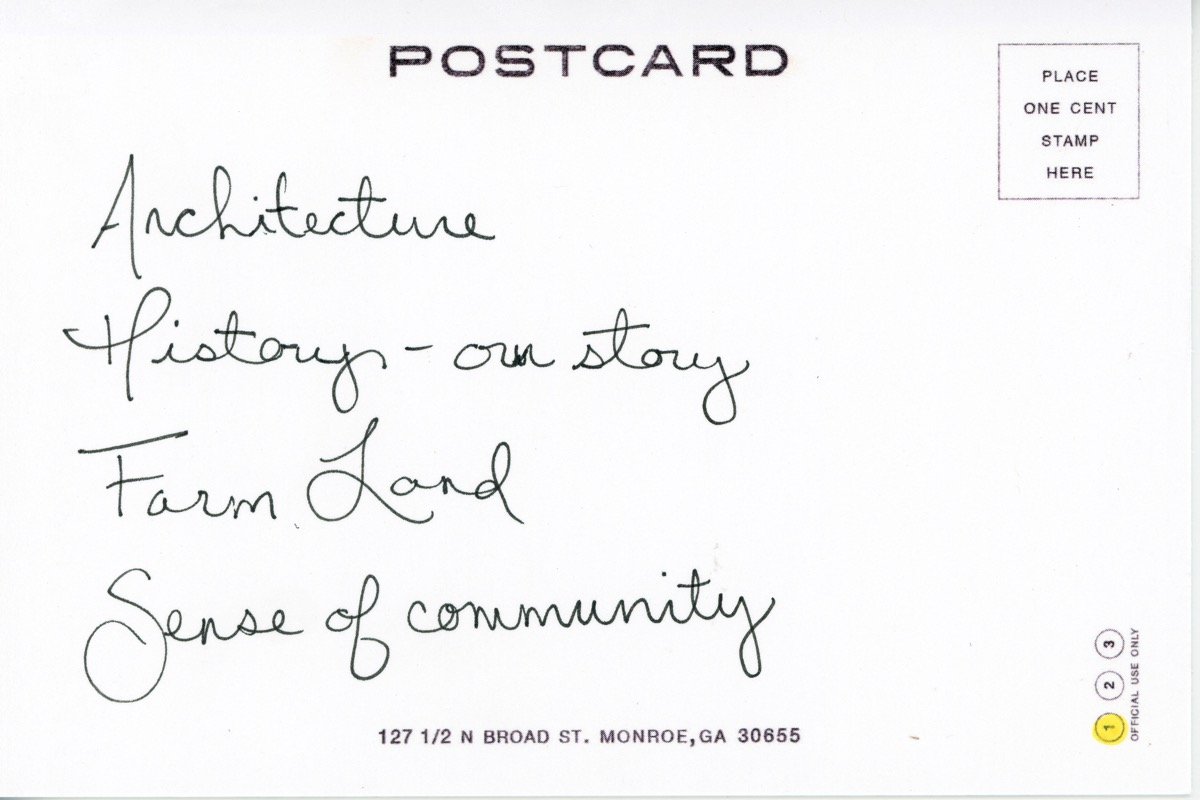 POSTCARD
PLACE
ONE CENT
STAMP
HERE
Architecture
History - our story
Farm Land
Sense of community
127 1/2 N BROAD ST. MONROE, GA 30655
1 2 3
OFFICIAL USE ONLY